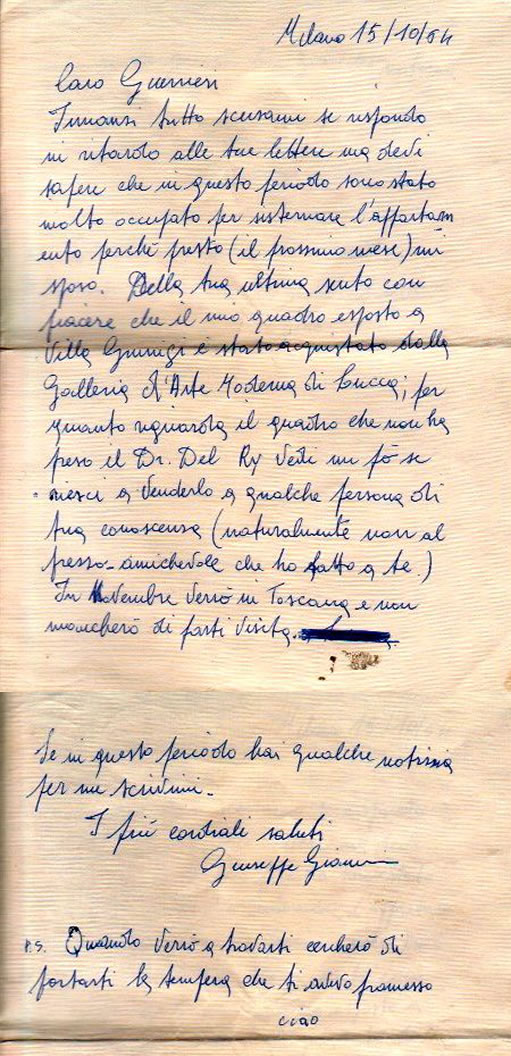 Milano 15/10/64
Caro Guerrieri
Innanzi tutto scusami se rispondo
in ritardo alle tue lettere ma devi
sapere che in questo periodo sono stato
molto occupato per sistemare l'appartam
ento perché presto (il prossimo mese) mi
sposo. Della tua ultima sento con
piacere che il mio quadro esposto a
Villa Guinigi è stato acquistato dalla
Galleria d'Arte Moderna di Lucca; per
quanto riguarda il quadro che non ha
preso il Dr. Del Ry vedi un pò se
riesci a venderlo a qualche persona di
tua conoscenza (naturalmente non al
prezzo-amichevole che ho fatto a te.)
In Novembre verrò in Toscana e non
mancherò di farti visita.
Se in questo periodo hai qualche notizia
per me scrivimi-
I più cordiali saluti
Giuseppe
P.S. Quando verrò a trovarti cercherò di
portarti la tempera che ti avevo promesso
ciao